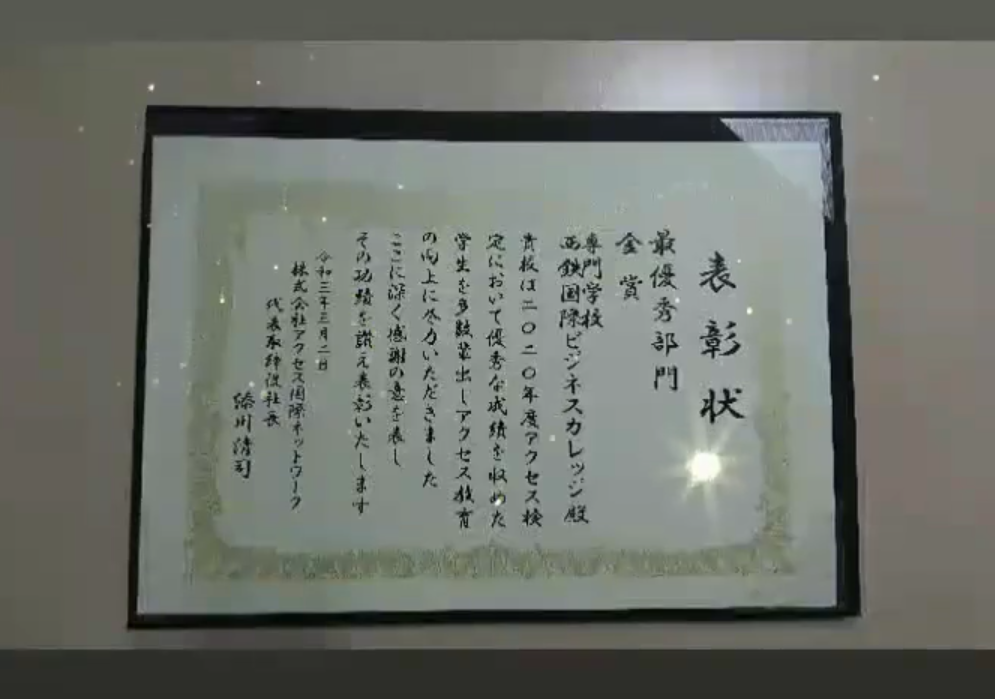 表彰状
最優秀部門
金賞
専門学校
西鉄国際ビジネスカレッジ殿
貴校は二〇二〇年度アクセス検
定において優秀な成績を収めた
学生を多数輩出しアクセス教育
の向上に尽力いただきました
ここに深く感謝の意を表し
その功績を讃え表彰いたします
令和三年三月二日
株式会社アクセス国際ネットワーク
代表取締役社長